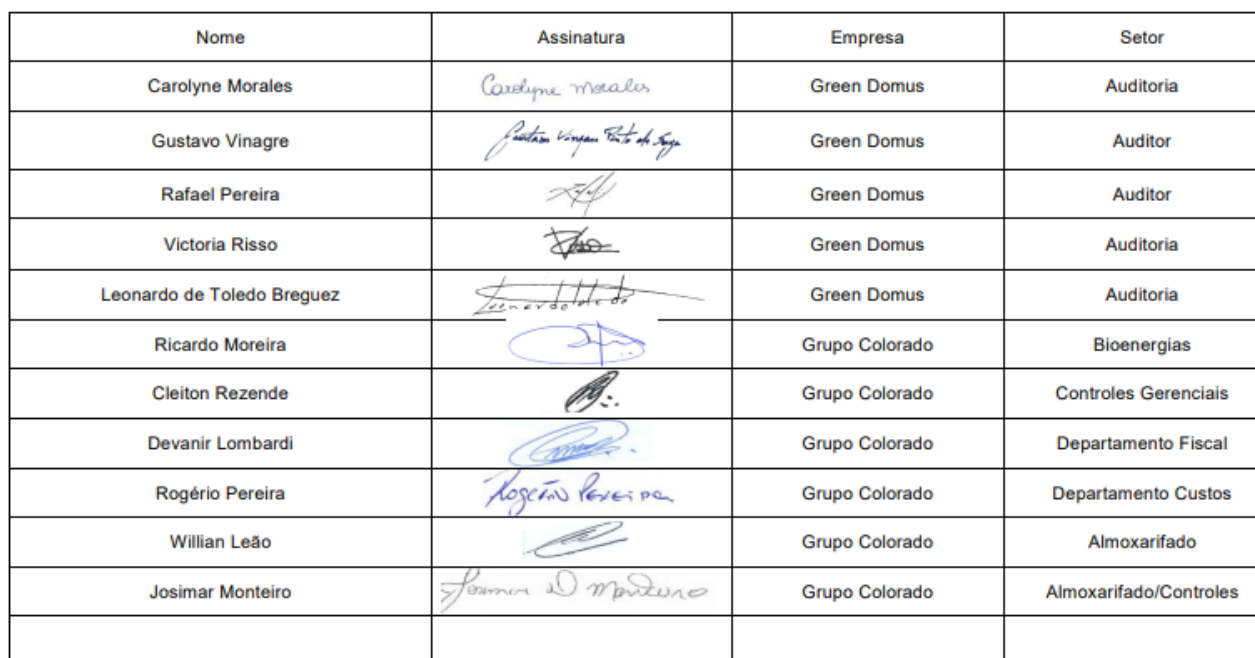 Nome Assinatura Empresa Setor
Carolyne Morales Carolyne Morales Green Domus Auditoria
Gustavo Vinagre Green Domus Auditor
Rafael Pereira Green Domus Auditor
Victoria Risso Green Domus Auditoria
Leonardo de Toledo Breguez Green Domus Auditoria
Ricardo Moreira Grupo Colorado Bioenergias
Cleiton Rezende Grupo Colorado Controles Gerenciais
Devanir Lombardi Grupo Colorado Departamento Fiscal
Rogério Pereira Rogério Pereira Grupo Colorado Departamento Custos
Willian Leão Grupo Colorado Almoxarifado
Josimar Monteiro Grupo Colorado Almoxarifado/Controles